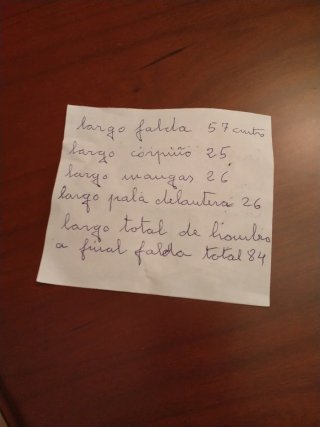 largo falda 57 cmtro
largo corpiño 25
largo mangas 26
largo pala delantera 26
largo total de hombro
a final falda total 84